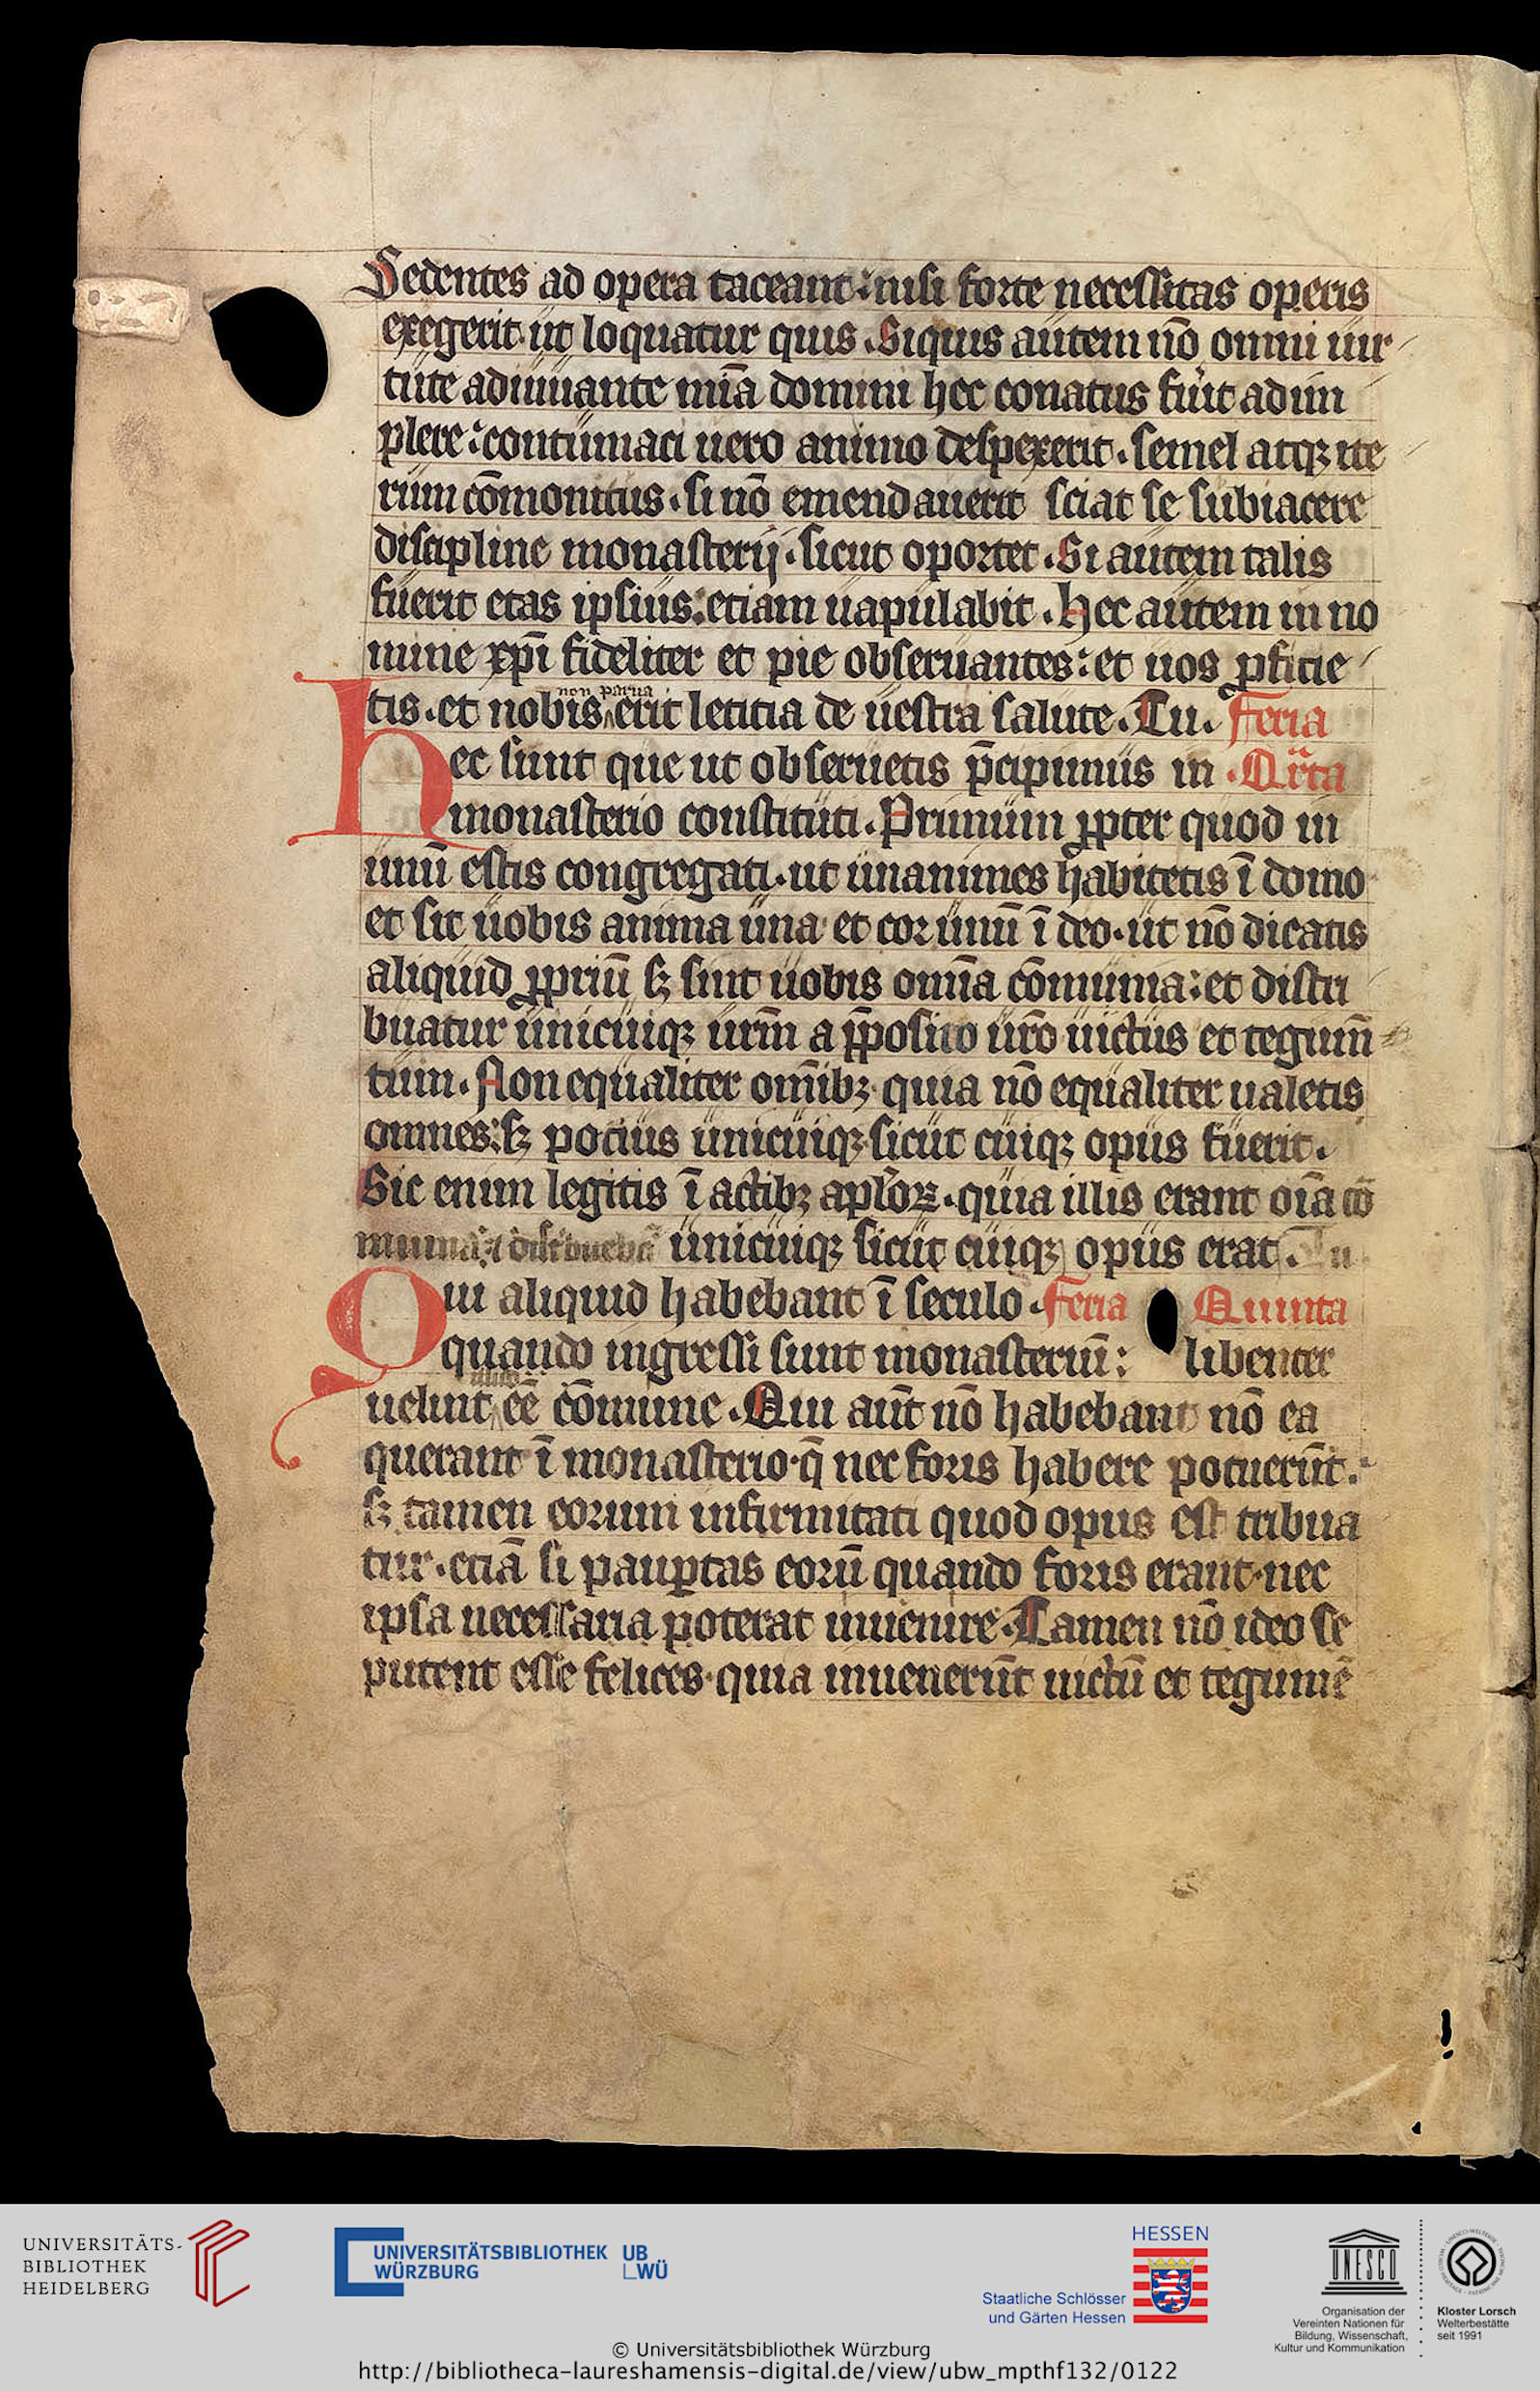 Sedentes ad opera taceant: nisi forte necessitas operis
exegerit ut loquatur quis. Siquis autem nō omni uir
tute adiuuante mīa domini hec conatus fuīt ad im
plere: contumaci uero animo despexerit. semel atqꝫ ite
rum cōmonitus. si nō emendauerit sciat se subiacere
discipline monasterij. sicut oportet. Si autem talis
fuerit etas ipsius: etiam uapulabit. Hec autem in no
mine xp̄i fideliter et pie obseruantes: et uos ꝓficie
non parua
tis. et nobis erit letitia de uestra salute. Tu. Feria
Hec sunt que ut obseruetis p̄cipimus in Qᷓrta
monasterio constituti. Primum ꝓpter quod in
unū estis congregati. ut unanimes habitetis ī domo
et sit uobis anima una et cor unū ī deo. ut nō dicatis
aliquid ꝓpriū sꝫ sint uobis om̄ia cōmunia: et distri
buatur unicuiqꝫ ur̄m a p̄posito ur̄o uictus et tegum̄
tum. Non equaliter om̄ibꝫ quia nō equaliter ualetis
omnes: sꝫ potius unicuiqꝫ sicut cuiqꝫ opus fuerit.
Sic enim legitis ī actibꝫ aplo̓ꝝ. quia illis erant oīa cō
munia: ⁊ distˈbuebāt unicuiqꝫ sicut cuiqꝫ opus erat. Tu
Qui aliquid habebant ī seculo. Feria Quinta
quando ingressi sunt monasteriū: libenter
illud
uelint eē cōmune. Qui aūt nō habebant nō ea
querant ī monasterio. q̄ nec foris habere potuerūt.
sꝫ tamen eorum infirmitati quod opus est tribua
tur. etiā si pauꝑtas eorū quando foris erant. nec
ipsa necessaria poterat inuenire. Tamen nō ideo se
putent esse felices. quia inuenerūt uictū et tegumē
UNIVERSITÄTS-
BIBLIOTHEK
HEIDELBERG
UNIVERSITÄTSBIBLIOTHEK
WÜRZBURG
UB
WÜ
HESSEN
Staatliche Schlösser
und Gärten Hessen
UNESCO
Organisation der
Vereinten Nationen für
Bildung, Wissenschaft,
Kultur und Kommunikation
Kloster Lorsch
Welterbestätte
seit 1991
© Universitätsbibliothek Würzburg
http://bibliotheca-laureshamensis-digital.de/view/ubw_mpthf132/0122